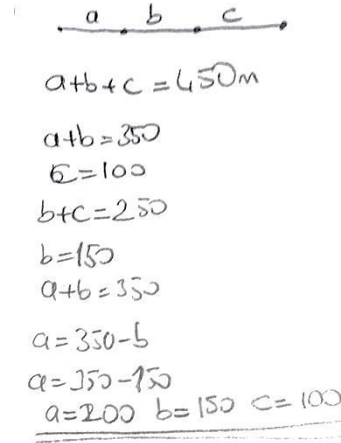 a b c
a+b+c=450m
a+b=350
c=100
b+c=250
b=150
a+b=350
a=350-b
a=350-150
a=200 b=150 c=100